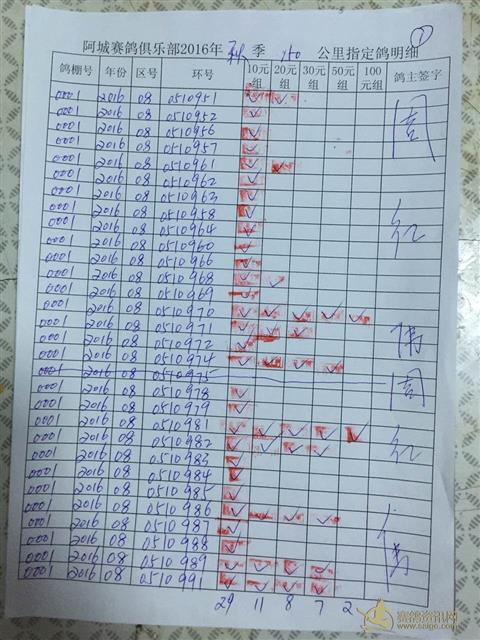 ②
阿城赛鸽俱乐部2016年 秋 季 150 公里指定鸽明细
鸽棚号 年份 区号 环号 10元组 20元组 30元组 50元组 100元组 鸽主签字
0001 2016 08 0510951 ✓ ✓
0001 2016 08 0510952 ✓
0001 2016 08 0510956 ✓
0001 2016 08 0510957 ✓
0001 2016 08 0510961 ✓ ✓
0001 2016 08 0510962 ✓
0001 2016 08 0510963 ✓
0001 2016 08 0510958 ✓
0001 2016 08 0510964 ✓
0001 2016 08 0510960 ✓
0001 2016 08 0510966 ✓
0001 2016 08 0510968 ✓ ✓
0001 2016 08 0510969 ✓
0001 2016 08 0510970 ✓ ✓ ✓ ✓ ✓
0001 2016 08 0510971 ✓ ✓ ✓
0001 2016 08 0510972 ✓
0001 2016 08 0510974 ✓ ✓ ✓ ✓
0001 2016 08 0510975
0001 2016 08 0510978 ✓
0001 2016 08 0510979 ✓
0001 2016 08 0510981 ✓ ✓ ✓ ✓ ✓
0001 2016 08 0510982 ✓ ✓ ✓ ✓
0001 2016 08 0510983 ✓
0001 2016 08 0510984 ✓
0001 2016 08 0510985 ✓
0001 2016 08 0510986 ✓ ✓ ✓ ✓
0001 2016 08 0510987 ✓
0001 2016 08 0510988 ✓
0001 2016 08 0510989 ✓ ✓ ✓ ✓
0001 2016 08 0510991 ✓ ✓ ✓ ✓
29 11 8 7 2
周
红
伟
周
红
伟
赛鸽资讯网
www.saige.com